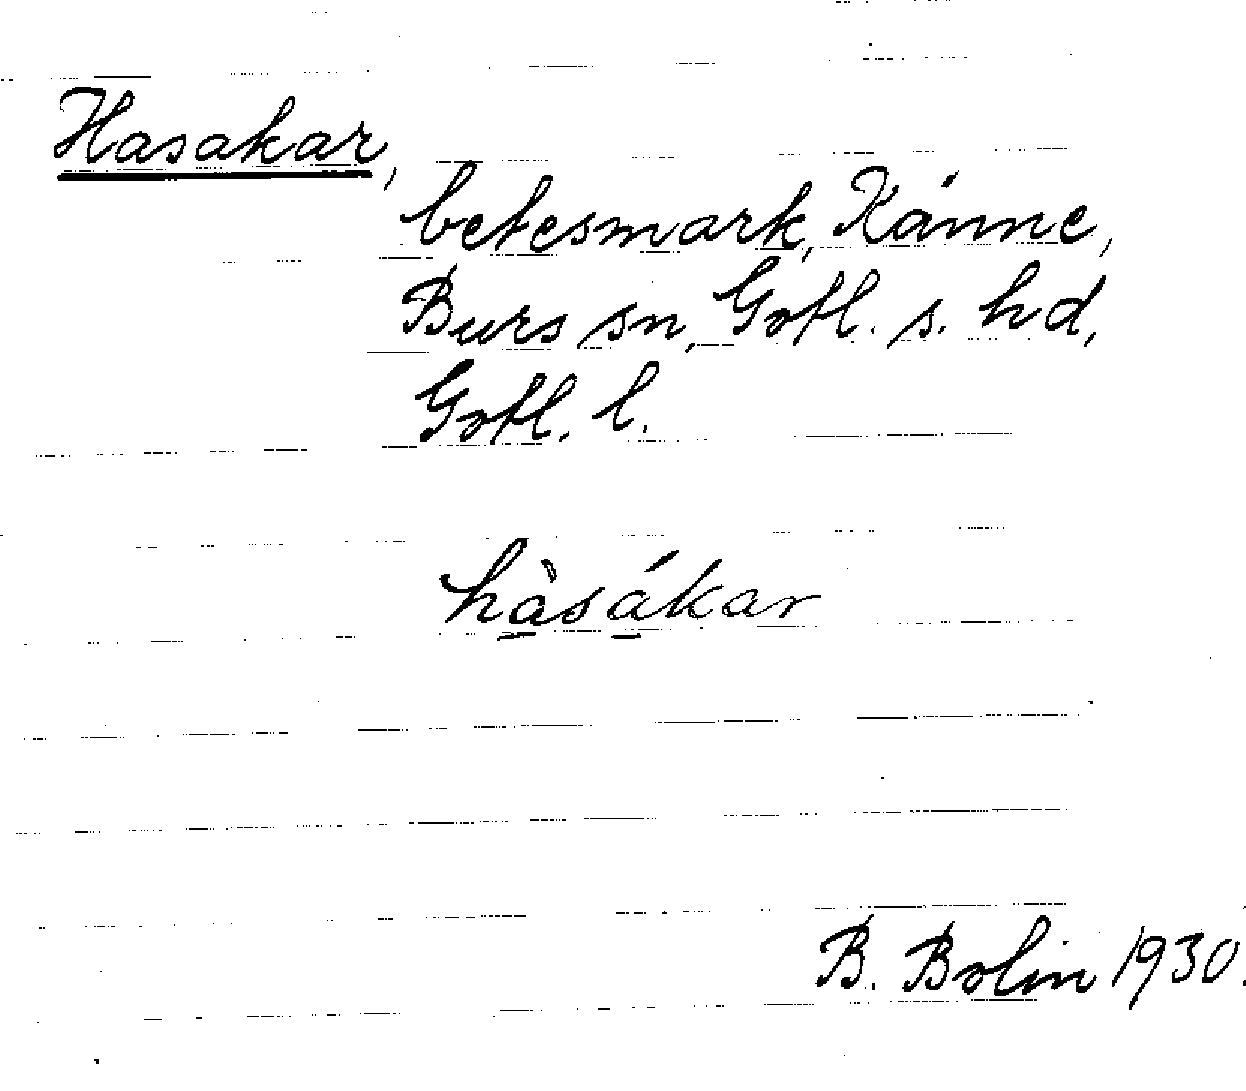 Hasakar,
betesmark, Känne,
Burs sn, Gotl. s. hd,
Gotl. l.
hàsákar
B. Bolin 1930.